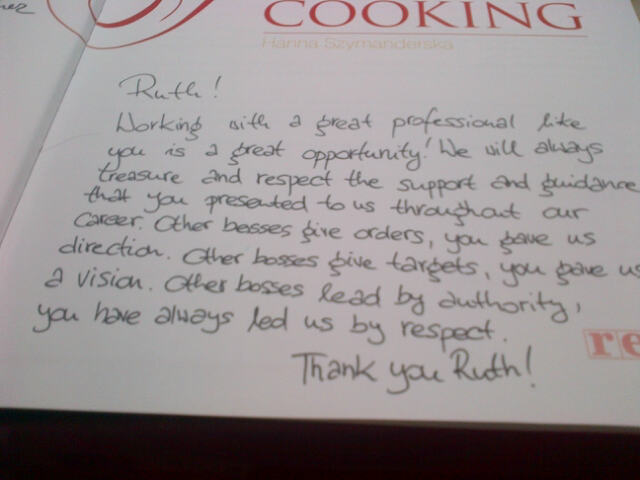 COOKING
Hanna Szymanderska
Ruth!
Working with a great professional like
you is a great opportunity! We will always
treasure and respect the support and guidance
that you presented to us throughout our
career. Other bosses give orders, you gave us
direction. Other bosses give targets, you gave us
a vision. Other bosses lead by authority,
you have always led us by respect.
re
Thank you Ruth!